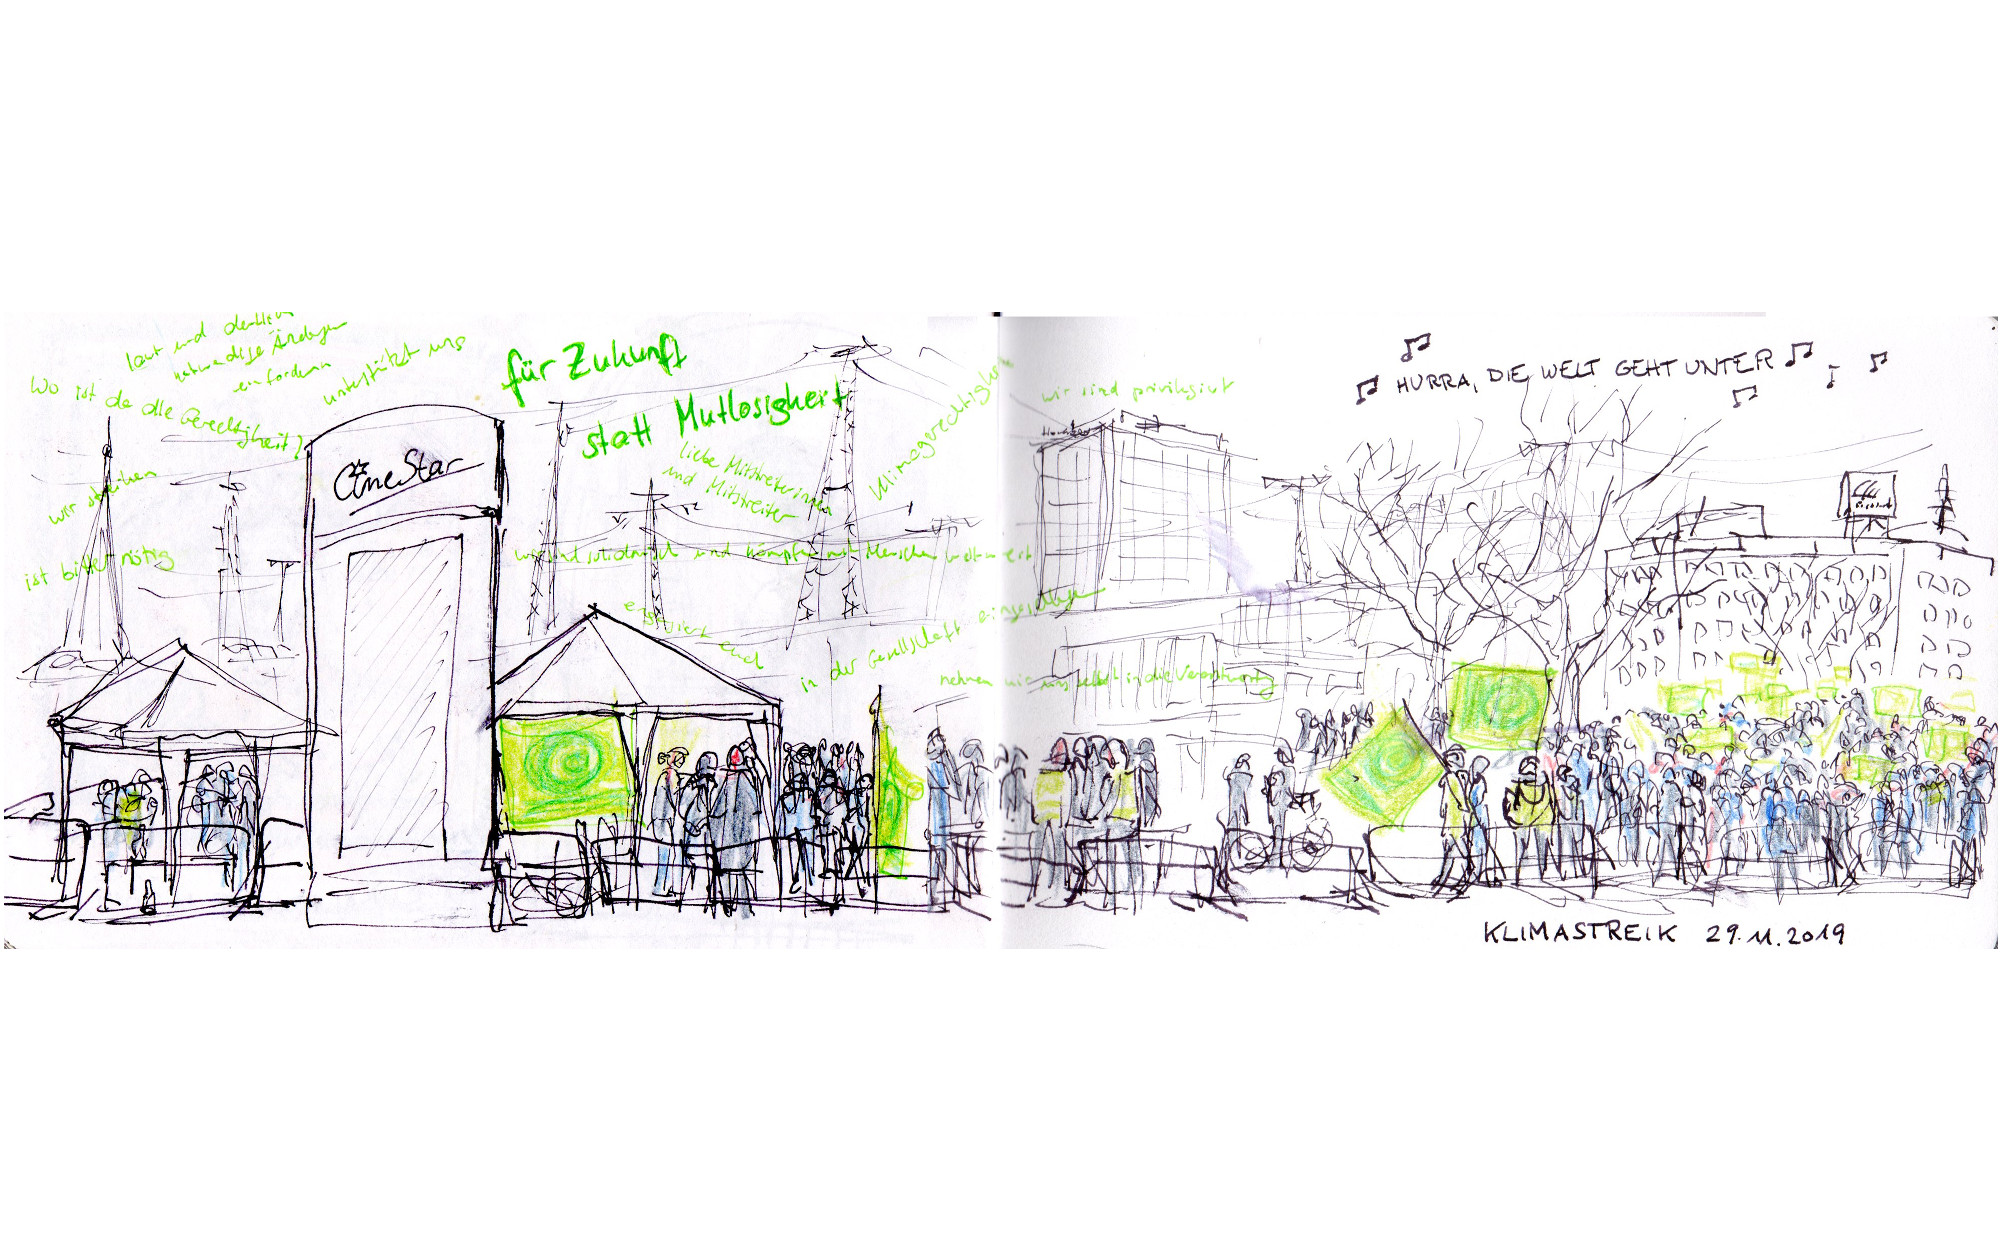 laut und deutlich
notwendige Änderungen
einfordern
unterstützt uns
Wo ist da die Gerechtigkeit?
wir streiken
ist bitter nötig
CineStar
für Zukunft
statt Mutlosigkeit
liebe Mitstreiterinnen
und Mitstreiter
Klimagerechtigkeit
wir sind solidarisch und kämpfen mit Menschen weltweit
engagiert euch
in der Gesellschaft
nehmen wir uns selbst in die Verantwortung
wir sind privilegiert
HURRA, DIE WELT GEHT UNTER
KLIMASTREIK 29.11.2019